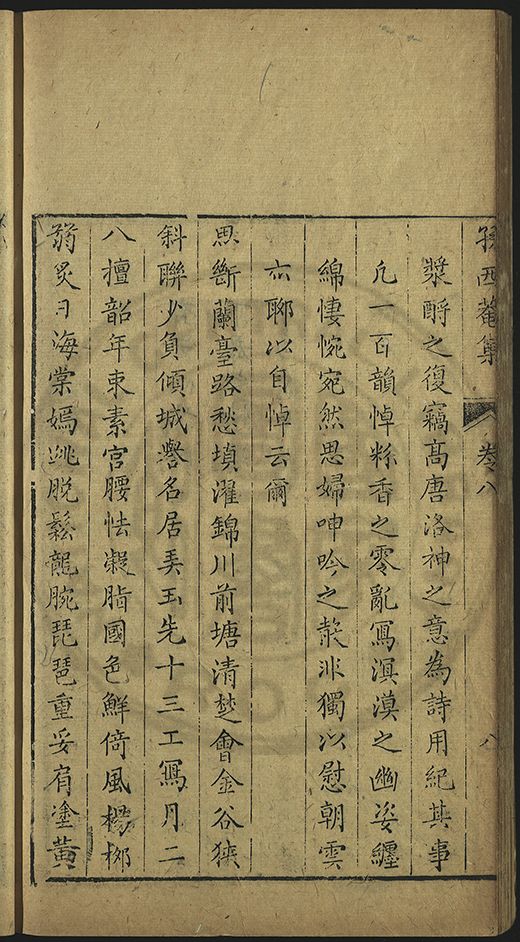 孫西菴集 卷八 八
漿酹之復竊髙唐洛神之意為詩用紀其事
凡一百韻悼粉香之零亂寫溟漠之幽姿纏
綿悽惋宛然思婦呻吟之㪚非獨以慰朝雲
亦聊以自悼云爾
思斷蘭臺路愁填濯錦川前塘清楚會金谷狹
斜聯少負傾城譽名居弄玉先十三工寫月二
八擅韶年束素宮腰怯凝脂國色鮮倚風楊栁
弱炙日海棠嫣跳脫鬆龍腕琵琶重妥肩塗黃